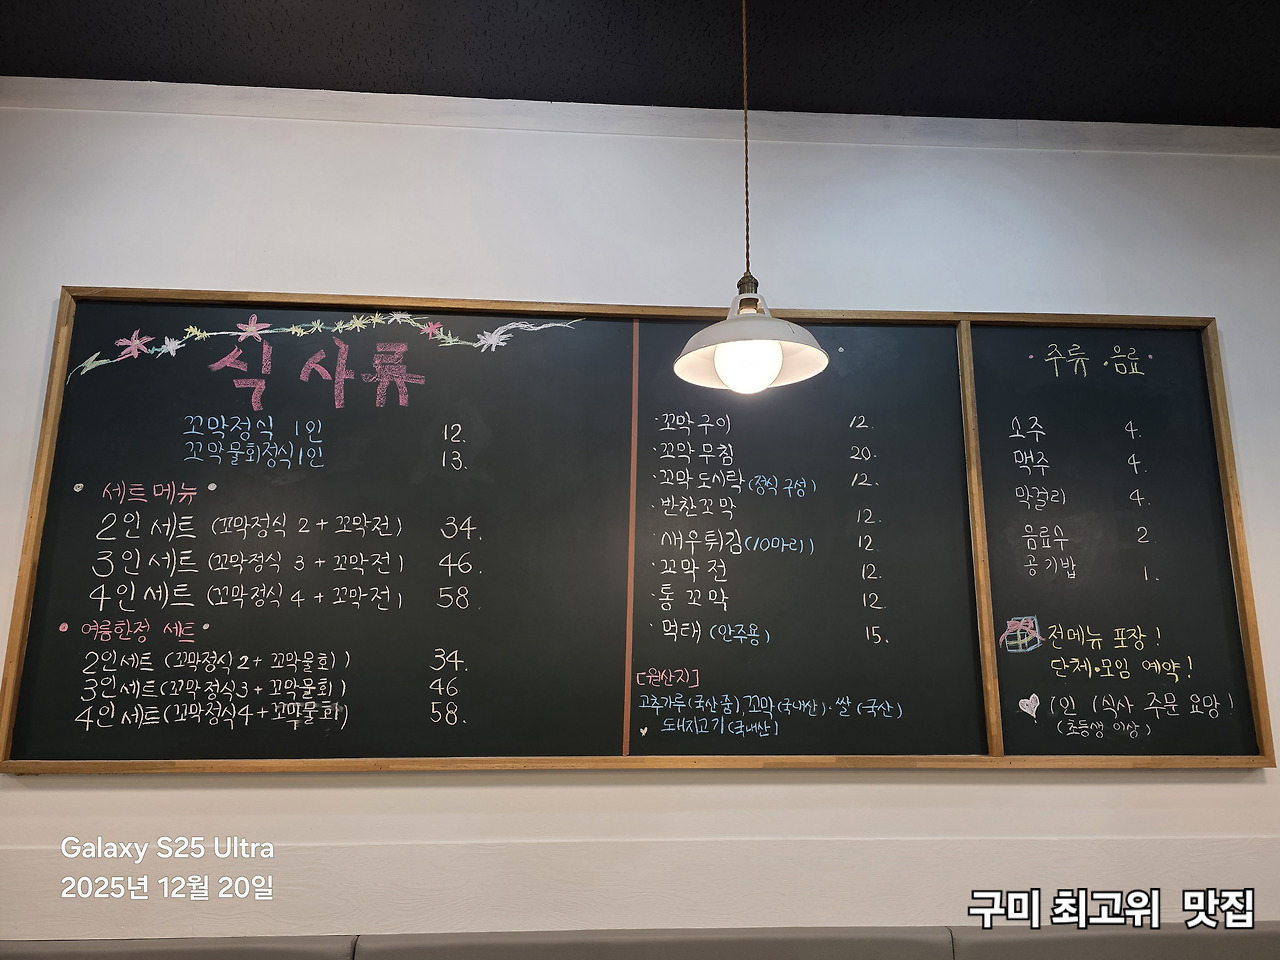 식사류
꼬막정식 1인 12.
꼬막물회정식 1인 13.
세트메뉴
2인 세트 (꼬막정식 2 + 꼬막전) 34.
3인 세트 (꼬막정식 3 + 꼬막전) 46.
4인 세트 (꼬막정식 4 + 꼬막전) 58.
여름한정 세트
2인세트 (꼬막정식 2 + 꼬막물회) 34.
3인세트 (꼬막정식3 + 꼬막물회) 46
4인세트 (꼬막정식4 + 꼬막물회) 58.
·꼬막구이 12.
·꼬막무침 20.
·꼬막도시락 (정식구성) 12.
·반찬꼬막 12.
·새우튀김 (10마리) 12.
·꼬막전 12.
·통꼬막 12.
·먹태 (안주용) 15.
[원산지]
고추가루(국산,중), 꼬막(국내산)·쌀(국산)
돼지고기(국내산)
·주류·음료·
소주 4.
맥주 4.
막걸리 4.
음료수 2.
공기밥 1.
전메뉴 포장!
단체·모임 예약!
1인 1식사 주문 요망!
(초등생 이상)
Galaxy S25 Ultra
2025년 12월 20일
구미 최고위 맛집